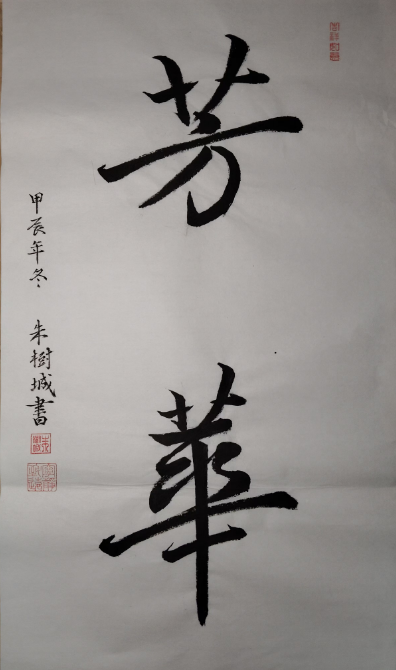 芳華
甲辰年冬
朱樹城書